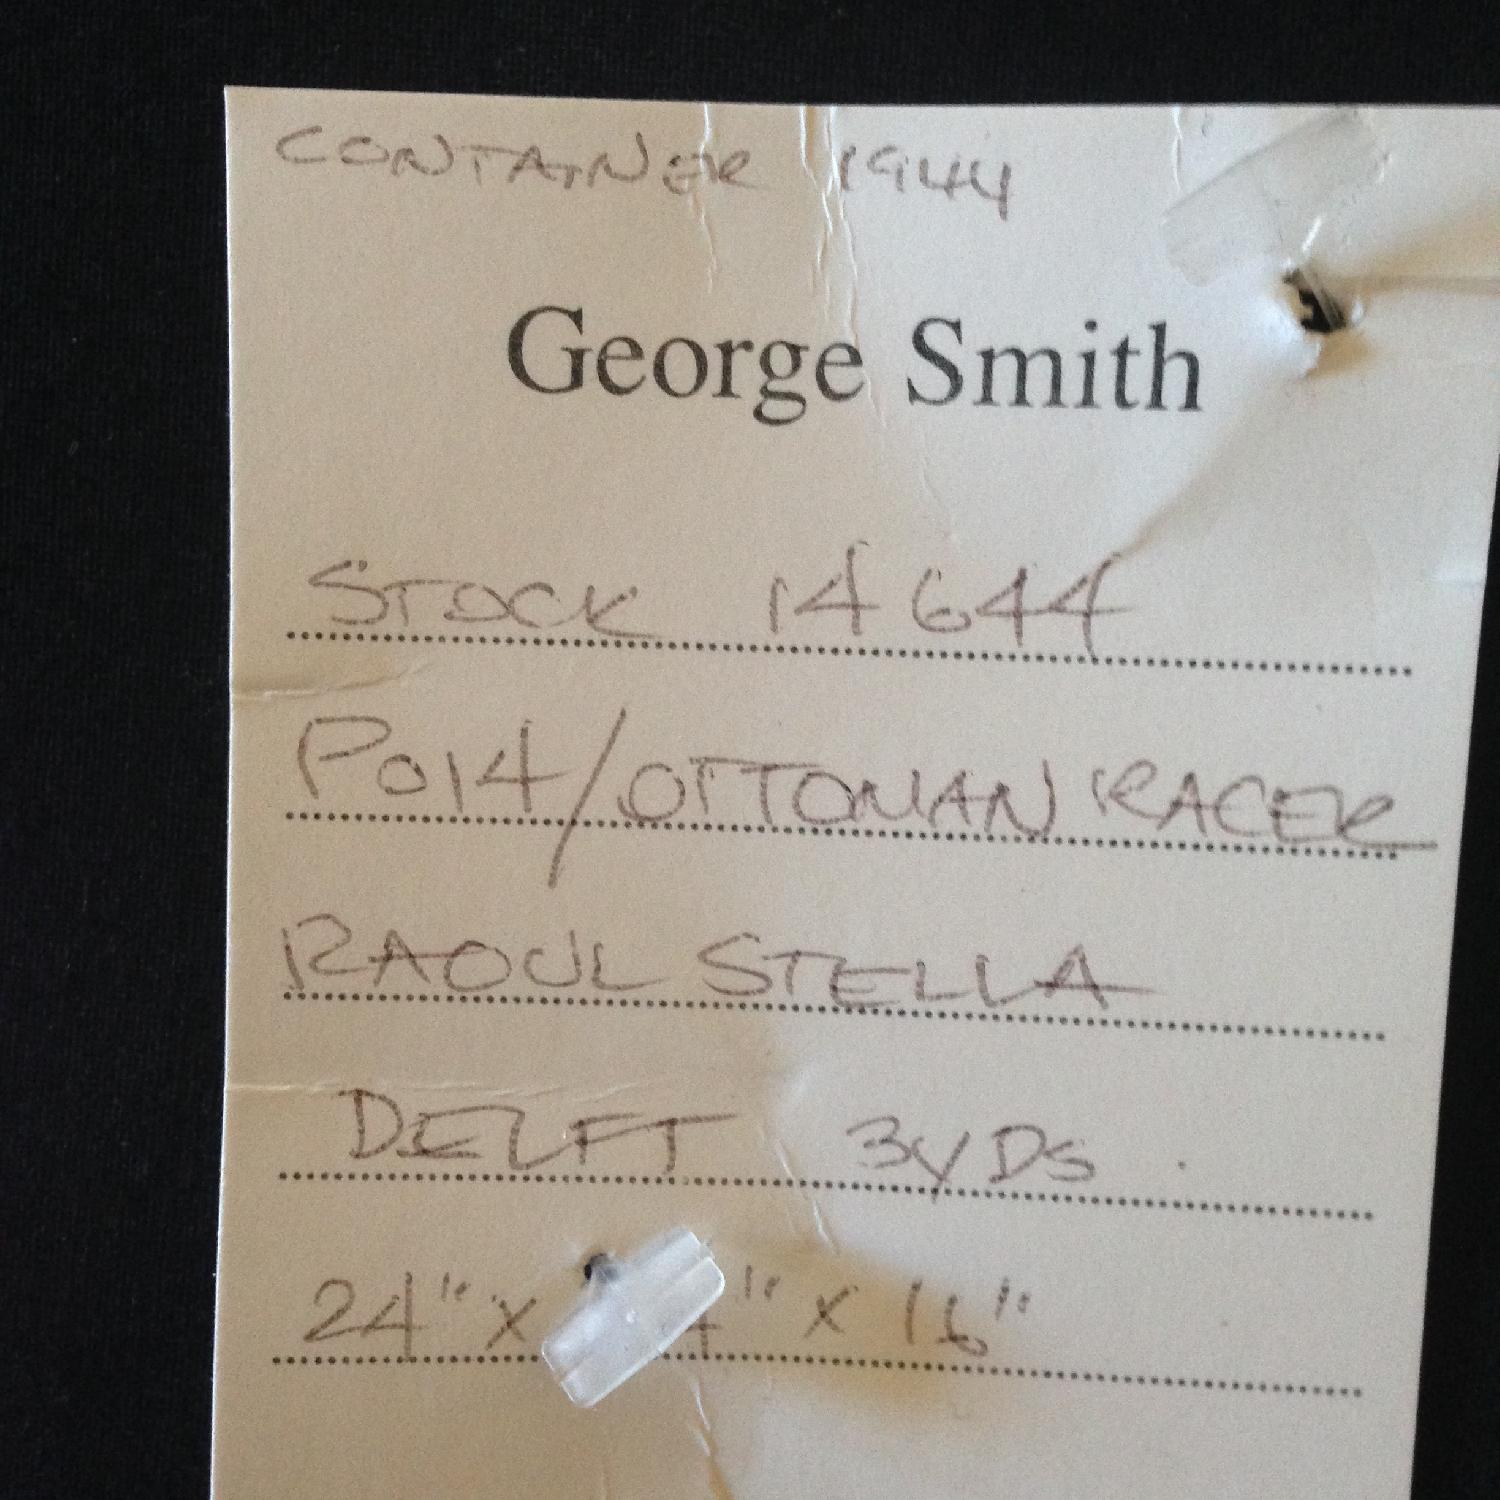 CONTAINER 1944
George Smith
STOCK 14644
PO14/OTTOMAN RACER
RAOUL STELLA
DELFT 3YDS.
24" x 4" x 16"